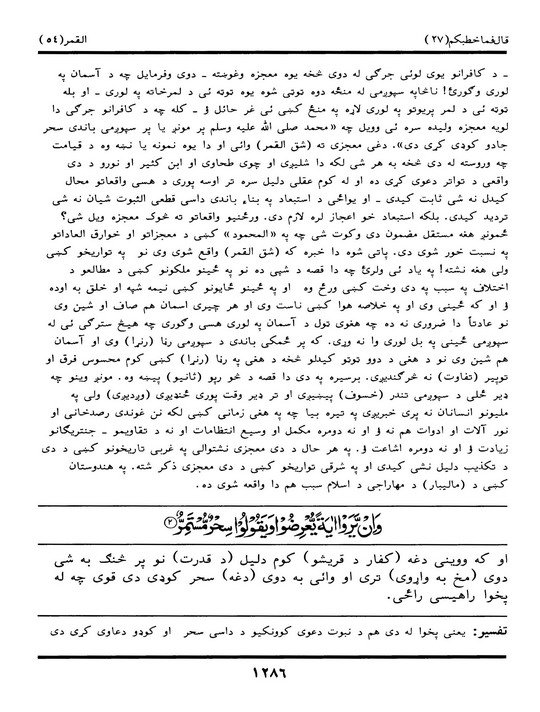 قال فما خطبكم (٢٧) القمر (٥٤)
ـ د کافرانو یوی لوئی جرگی له دوی څخه یوه معجزه وغوښته ـ دوی وفرمایل چه د آسمان په
لوری وگورئ! ناڅاپه سپوږمی له منځه دوه توتی شوه یوه توته ئی د لمرخاته په لوری ـ او بله
توته ئی د لمر پریوتو په لوری لاړه په منځ کښی ئی غر حائل ؤ ـ کله چه د کافرانو جرگی دا
لویه معجزه ولیده سره ئی وویل چه «محمد صلی الله علیه وسلم پر مونږ یا پر سپوږمی باندی سحر
جادو کوډی کړی دی». دغی معجزی ته (شق القمر) وائی او دا یوه نمونه یا نښه وه د قیامت
چه وروسته له دی څخه به هر شی لکه دا شلیږی او چوی طحاوی او ابن کثیر او نورو د دی
واقعی د تواتر دعوی کړی ده او له کوم عقلی دلیل سره تر اوسه پوری د هسی واقعاتو محال
کیدل نه شی ثابت کیدی ـ او یواځی د استبعاد په بناء باندی داسی قطعی الثبوت شیان نه شی
تردید کیدی. بلکه استبعاد خو اعجاز لره لازم دی. ورځنیو واقعاتو ته څوک معجزه ویل شی؟
ځمونږ هغه مستقل مضمون دی وکوت شی چه په «المحمود» کښی د معجزاتو او خوارق العاداتو
په نسبت خور شوی دی. پاتی شوه دا خبره که (شق القمر) واقع شوی وی نو په تواریخو کښی
ولی هغه نشته! په یاد ئی ولرئ چه دا قصه د شپی ده نو په ځینو ملکونو کښی د مطالعو د
اختلاف په سبب په دی وخت کښی ورځ وه او په ځینو ځایونو کښی نیمه شپه او خلق به اوده
ؤ او که ځینی وی او په خلاصه هوا کښی ناست وی او هر چیری اسمان هم صاف او شین وی
نو عادتاً دا ضروری نه ده چه هغوی ټول د آسمان په لوری هسی وگوری چه هیڅ سترگی ئی له
سپوږمی ځینی په بل لوری وا نه وړی. که پر ځمکی باندی د سپوږمی رڼا (رنړا) وی او آسمان
هم شین وی نو د هغی د دوو توتو کیدلو څخه د هغی په رڼا (رنړا) کښی کوم محسوس فرق او
توپیر (تفاوت) نه څرگندیږی. برسیره په دی دا قصه د څو رپو (ثانیو) پیښه وه. مونږ وینو چه
ډیر ځلی د سپوږمی تندر (خسوف) پیښیږی او تر ډیر وقت پوری ځنډیږی (وړدیږی) ولی په
ملیونو انسانان نه پری خبریږی په تیره بیا چه په هغی زمانی کښی لکه نن غوندی رصدخانی او
نور آلات او ادوات هم نه ؤ او نه دومره مکمل او وسیع انتظامات او نه د تقاویمو ـ جنتریگانو
زیادت ؤ او نه دومره اشاعت ؤ. په هر حال د دی معجزی نشتوالی په غربی تاریخونو کښی د دی
د تکذیب دلیل نشی کیدی او په شرقی تواریخو کښی د دی معجزی ذکر شته. په هندوستان
کښی د (مالیبار) د مهاراجی د اسلام سبب هم دا واقعه شوی ده.
وَاِنْ يَّرَوْا اٰيَةً يُّعْرِضُوْا وَيَقُوْلُوْا سِحْرٌ مُّسْتَمِرٌّ ﴿٢﴾
او که ووینی دغه (کفار د قریشو) کوم دلیل (د قدرت) نو پر څنگ به شی
دوی (مخ به واړوی) تری او وائی به دوی (دغه) سحر کوډی دی قوی چه له
پخوا راهیسی راځی.
تفسیر: یعنی پخوا له دی هم د نبوت دعوی کوونکیو د داسی سحر او کوډو دعاوی کړی دی
١٢٨٦